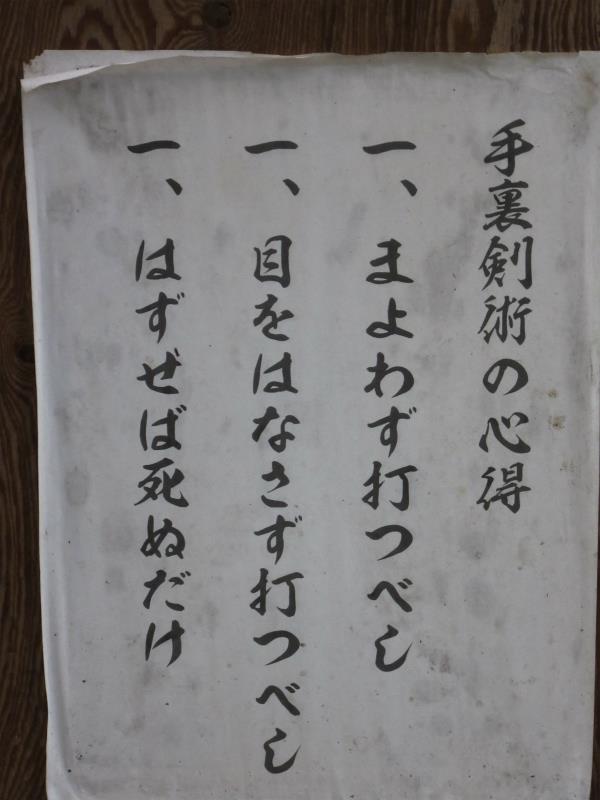 手裏剣術の心得
一、まよわず打つべし
一、目をはなさず打つべし
一、はずぜば死ぬだけ